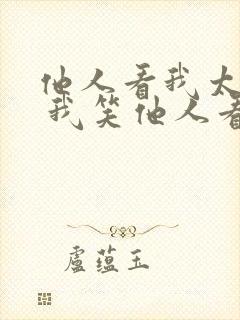 他人看我太
我笑他人看
盧蕴玉